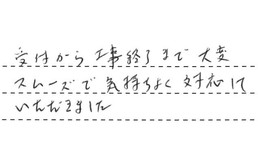 受付から工事終了まで大変
スムーズで気持ちよく対応して
いただきました